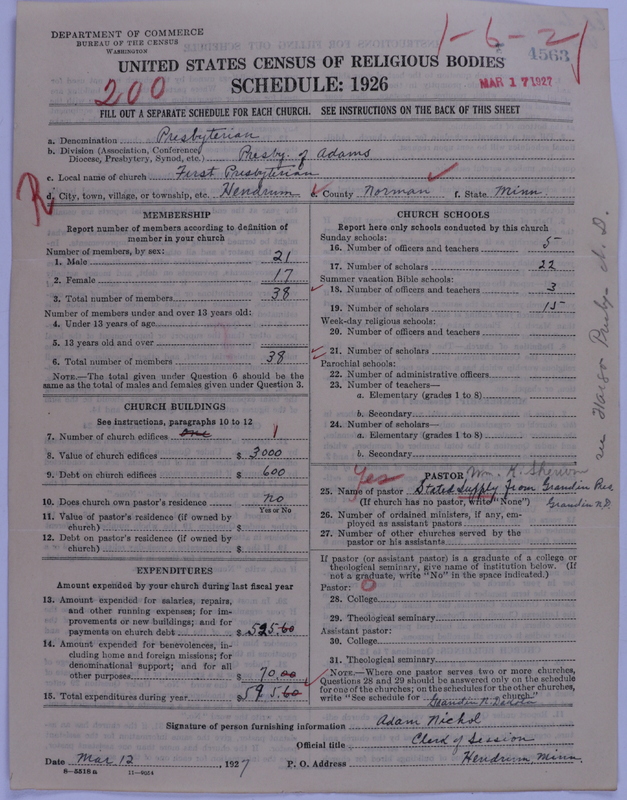 DEPARTMENT OF COMMERCE
BUREAU OF THE CENSUS
WASHINGTON
1-6-21
4563
UNITED STATES CENSUS OF RELIGIOUS BODIES
MAR 17 1927
200
SCHEDULE: 1926
FILL OUT A SEPARATE SCHEDULE FOR EACH CHURCH. SEE INSTRUCTIONS ON THE BACK OF THIS SHEET
a. Denomination Presbyterian
b. Division (Association, Conference, Diocese, Presbytery, Synod, etc.) Presby. of Adams
c. Local name of church First Presbyterian
R
d. City, town, village, or township, etc. Hendrum e. County Norman f. State Minn.
MEMBERSHIP
Report number of members according to definition of
member in your church
Number of members, by sex:
1. Male 21
2. Female 17
3. Total number of members 38
Number of members under and over 13 years old:
4. Under 13 years of age
5. 13 years old and over
6. Total number of members 38
NOTE.—The total given under Question 6 should be
same as the total of males and females given under Question 3.
CHURCH BUILDINGS
See instructions, paragraphs 10 to 12
7. Number of church edifices One 1
8. Value of church edifices $ 3000
9. Debt on church edifices $ 600
10. Does church own pastor's residence no
Yes or No
11. Value of pastor's residence (if owned by
church) $
12. Debt on pastor's residence (if owned by
church) $
EXPENDITURES
Amount expended by your church during last fiscal year
13. Amount expended for salaries, repairs,
and other running expenses; for im-
provements or new buildings; and for
payments on church debt $ 525.60
14. Amount expended for benevolences, in-
cluding home and foreign missions; for
denominational support; and for all
other purposes $ 70.00
15. Total expenditures during year $ 595.60
CHURCH SCHOOLS
Report here only schools conducted by this church
Sunday schools:
16. Number of officers and teachers 5
17. Number of scholars 22
Summer vacation Bible schools:
18. Number of officers and teachers 3
19. Number of scholars 15
Week-day religious schools:
20. Number of officers and teachers
21. Number of scholars
Parochial schools:
22. Number of administrative officers
23. Number of teachers—
a. Elementary (grades 1 to 8)
b. Secondary
24. Number of scholars—
a. Elementary (grades 1 to 8)
b. Secondary
Yes PASTOR Wm. K. Sherwin
25. Name of pastor Stated Supply from Grandin Pres
(If church has no pastor, write "None") Grandin N.D.
26. Number of ordained ministers, if any, em-
ployed as assistant pastors
27. Number of other churches served by the
pastor or his assistants
If pastor (or assistant pastor) is a graduate of a college or
theological seminary, give name of institution below. (If
not a graduate, write "No" in the space indicated.)
Pastor: 0
28. College
29. Theological seminary
Assistant pastor:
30. College
31. Theological seminary
NOTE.—Where one pastor serves two or more churches,
Questions 28 and 29 should be answered only on the schedule
for one of the churches; on the schedules for the other churches,
write "See schedule for Grandin N. Dakota church."
in Fargo Presby - N. D.
Signature of person furnishing information Adam Nichol
Official title Clerk of Session
Date Mar 12, 1927 P. O. Address Hendrum Minn.
8—5518 a 11—9054